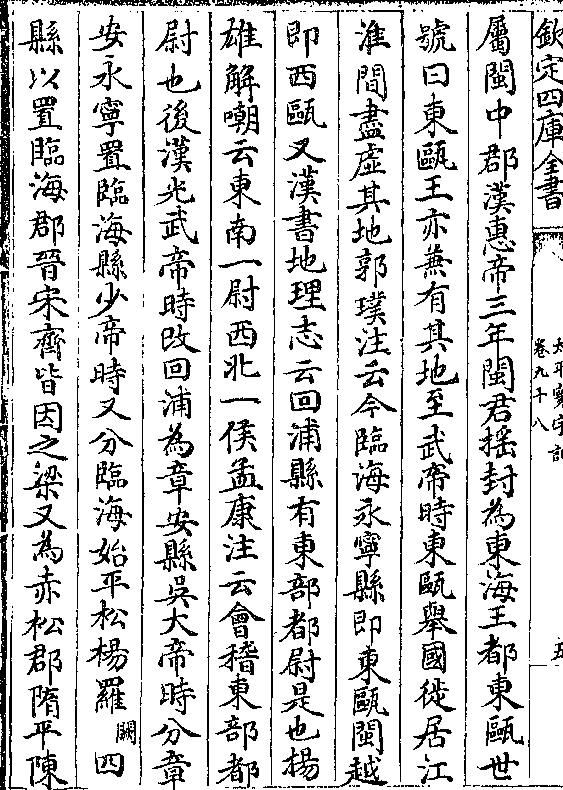 欽定四庫全書
太平寰宇記
卷九十八
五
屬閩中郡漢惠帝三年閩君揺封為東海王都東甌世
號曰東甌王亦兼有其地至武帝時東甌舉國徙居江
淮間盡虛其地郭璞注云今臨海永寧縣即東甌閩越
即西甌又漢書地理志云回浦縣有東部都尉是也楊
雄解嘲云東南一尉西北一候孟康注云會稽東部都
尉也後漢光武帝時改回浦為章安縣吳大帝時分章
安永寧置臨海縣少帝時又分臨海始平松楊羅闕四
縣以置臨海郡晉宋齊皆因之梁又為赤松郡隋平陳